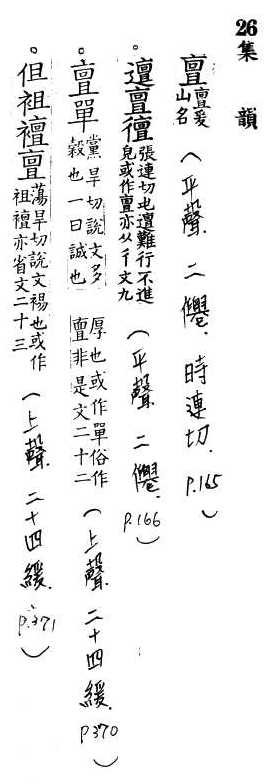 26集韻
亶亶爰山名(平聲 二僊 時連切. P.165)
。邅亶䢐張連切屯邅難行不進皃或作亶亦从彳文九(平聲 二僊. P.166)
。亶單黨旱切說文多穀也一曰誠也厚也或作單俗作亶非是文二十二(上聲 二十四緩. P370)
。但袒襢亶蕩旱切說文裼也或作袒襢亦省文二十三(上聲 二十四緩. P.371)